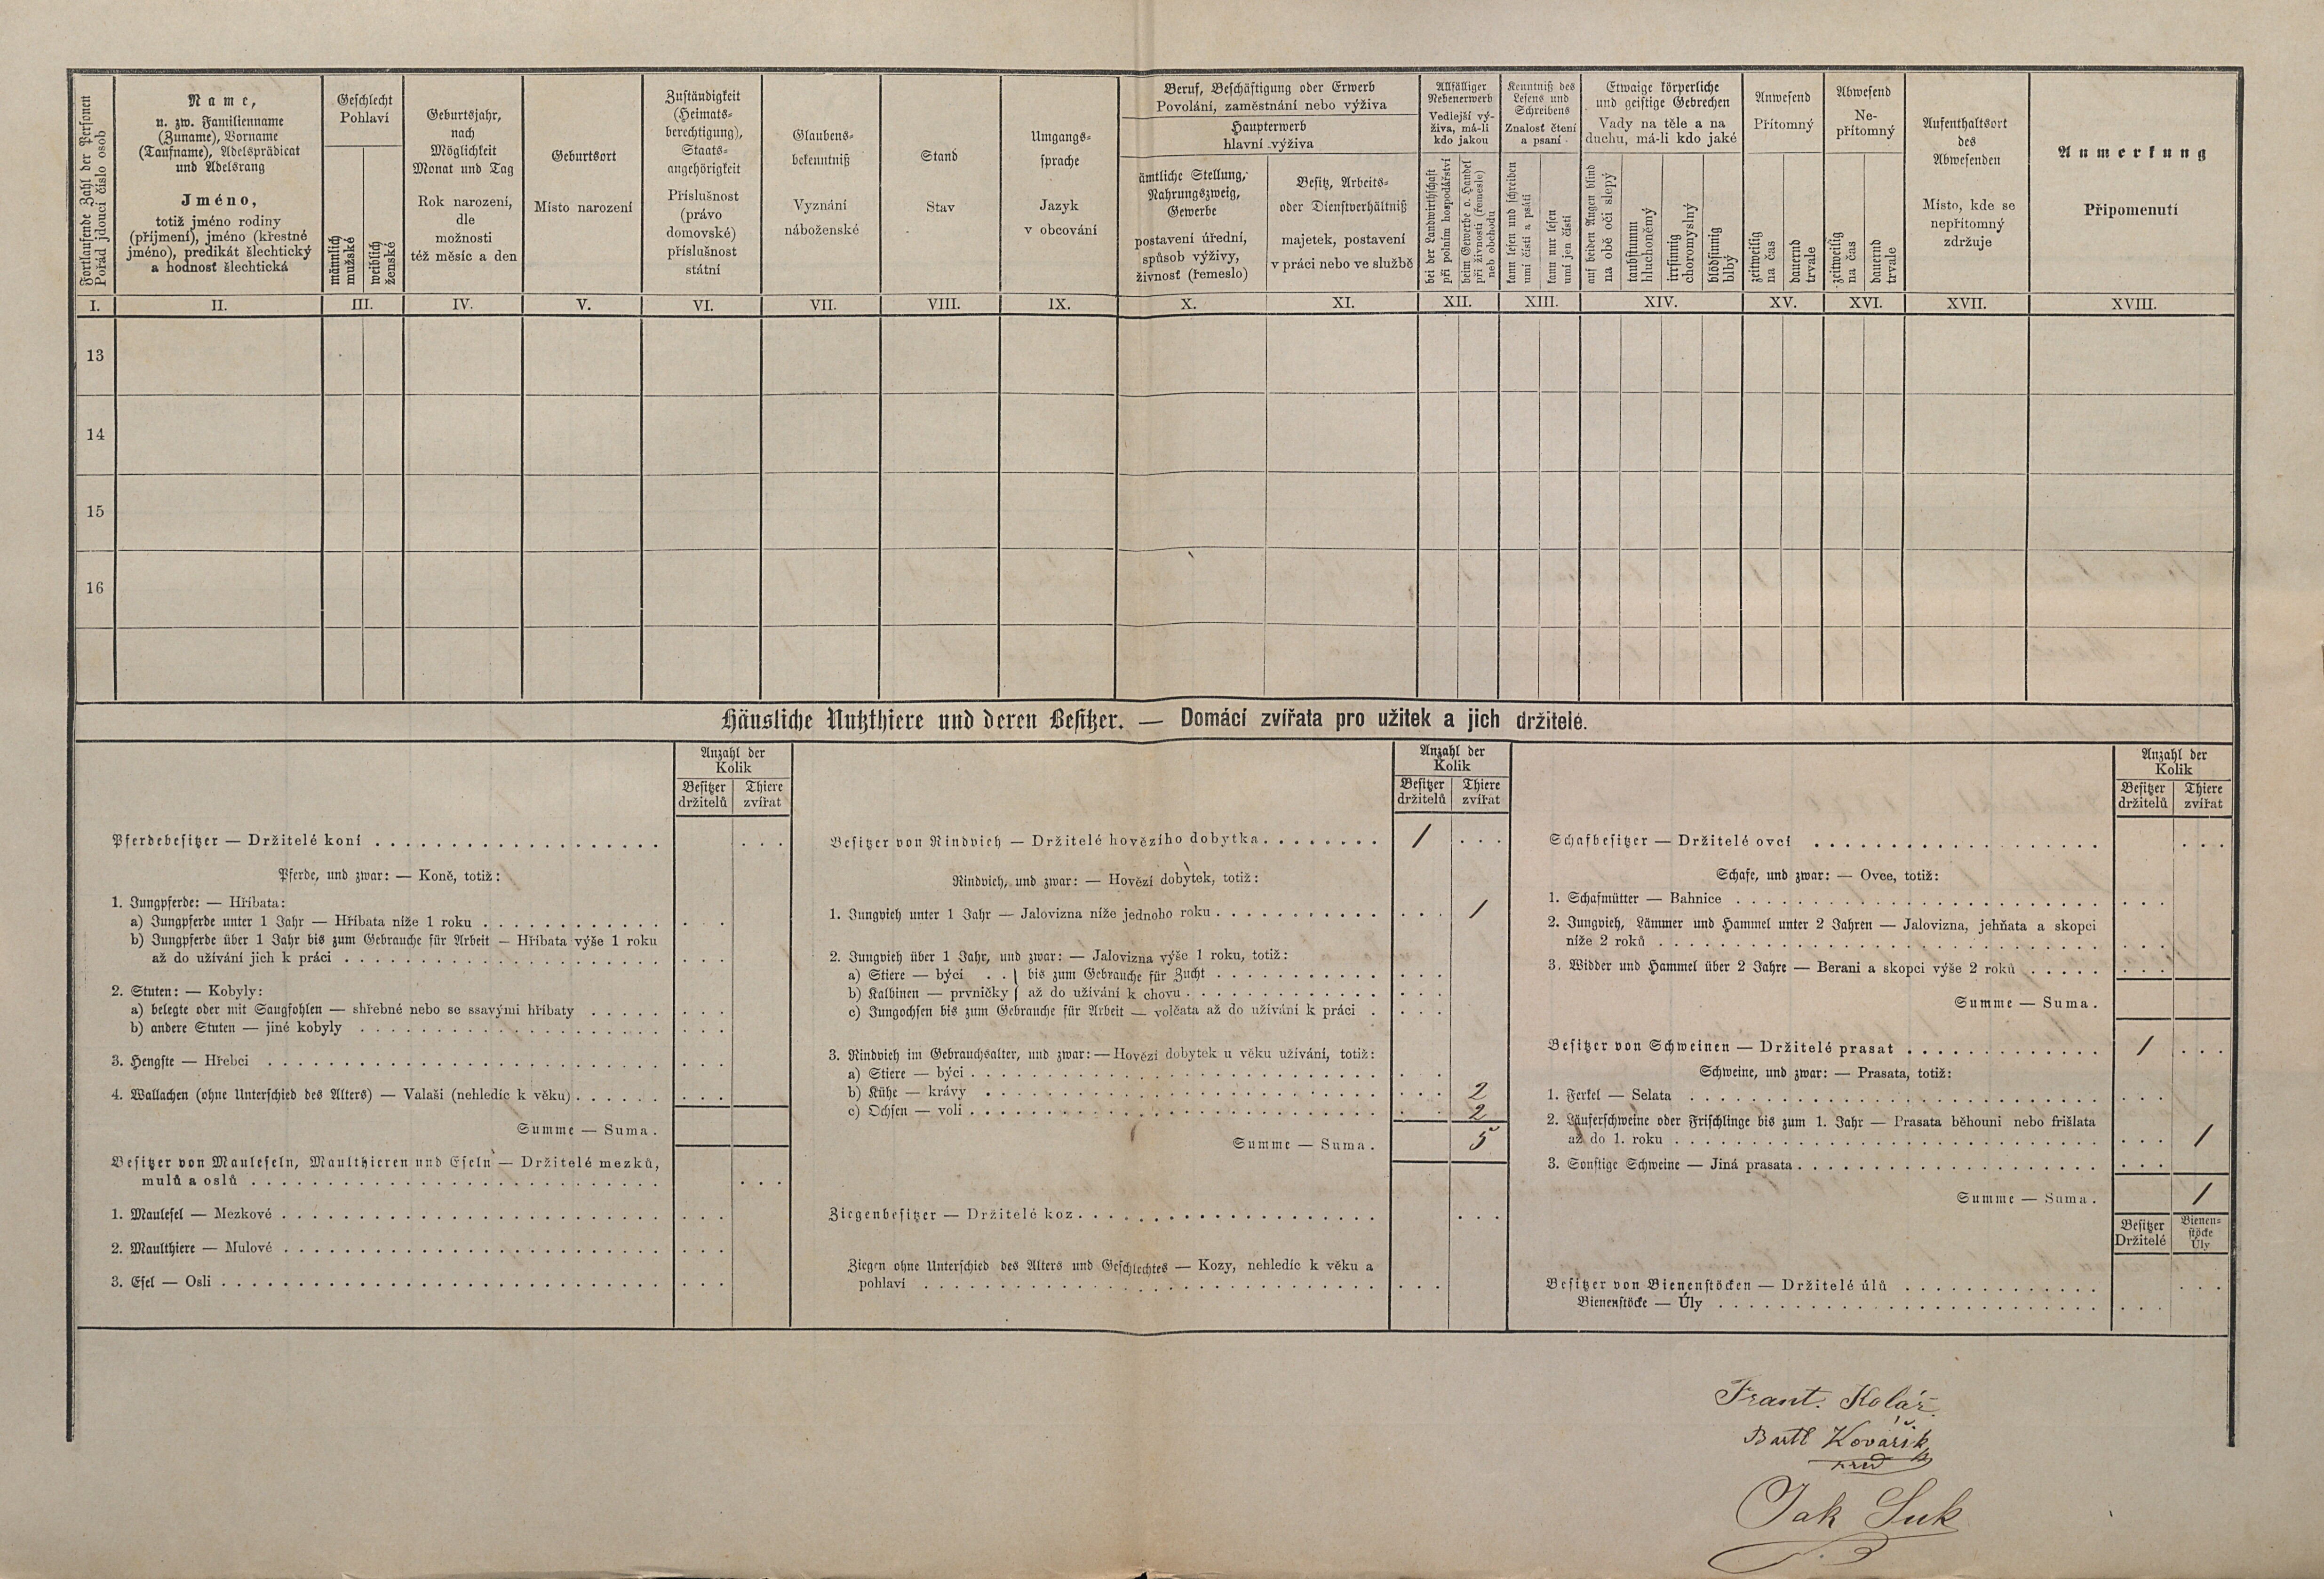 Fortlaufende Zahl der Personen
Pořád jdoucí číslo osob
I.
Name,
u. zw. Familienname
(Zuname), Vorname
(Taufname), Adelsprädicat
und Adelsrang
Jméno,
totiž jméno rodiny
(příjmení), jméno (křestné
jméno), predikát šlechtický
a hodnosť šlechtická
II.
Geschlecht
Pohlaví
männlich
mužské
weiblich
ženské
III.
Geburtsjahr,
nach
Möglichkeit
Monat und Tag
Rok narození,
dle
možnosti
též měsíc a den
IV.
Geburtsort
Místo narození
V.
Zuständigkeit
(Heimats-
berechtigung),
Staats-
angehörigkeit
Příslušnost
(právo
domovské)
příslušnost
státní
VI.
Glaubens-
bekenntniß
Vyznání
náboženské
VII.
Stand
Stav
VIII.
Umgangs-
sprache
Jazyk
v obcování
IX.
Beruf, Beschäftigung oder Erwerb
Povolání, zaměstnání nebo výživa
Haupterwerb
hlavní výživa
ämtliche Stellung,
Nahrungszweig,
Gewerbe
postavení úřední,
spůsob výživy,
živnosť (řemeslo)
X.
Besitz, Arbeits-
oder Dienstverhältniß
majetek, postavení
v práci nebo ve službě
XI.
Allfälliger
Nebenerwerb
Vedlejší vý-
živa, má-li
kdo jakou
bei der Landwirthschaft
při polním hospodářství
beim Gewerbe o. Handel
při živnosti (řemeslo)
neb obchodu
XII.
Kenntniß des
Lesens und
Schreibens
Znalosť čtení
a psaní
kann lesen und schreiben
umí čísti a psáti
kann nur lesen
umí jen čísti
XIII.
Etwaige körperliche
und geistige Gebrechen
Vady na těle a na
duchu, má-li kdo jaké
auf beiden Augen blind
na obě oči slepý
taubstumm
hluchoněmý
irrsinnig
choromyslný
blödsinnig
blbý
XIV.
Anwesend
Přítomný
zeitweilig
na čas
dauernd
trvale
XV.
Abwesend
Ne-
přítomný
zeitweilig
na čas
dauernd
trvale
XVI.
Aufenthaltsort
des
Abwesenden
Místo, kde se
nepřítomný
zdržuje
XVII.
Anmerkung
Připomenutí
XVIII.
13
14
15
16
Häusliche Nutzthiere und deren Besitzer. — Domácí zvířata pro užitek a jich držitelé.
Anzahl der
Kolik
Besitzer
držitelů
Thiere
zvířat
Pferdebesitzer — Držitelé koní
Pferde, und zwar: — Koně, totiž:
1. Jungpferde: — Hříbata:
a) Jungpferde unter 1 Jahr — Hříbata níže 1 roku
b) Jungpferde über 1 Jahr bis zum Gebrauche für Arbeit — Hříbata výše 1 roku
až do užívání jich k práci
2. Stuten: — Kobyly:
a) belegte oder mit Saugfohlen — shřebné nebo se ssavými hříbaty
b) andere Stuten — jiné kobyly
3. Hengste — Hřebci
4. Wallachen (ohne Unterschied des Alters) — Valaši (nehledíc k věku)
Summe — Suma.
Besitzer von Mauleseln, Maulthieren und Eseln — Držitelé mezků,
mulů a oslů
1. Maulesel — Mezkové
2. Maulthiere — Mulové
3. Esel — Osli
Anzahl der
Kolik
Besitzer
držitelů
Thiere
zvířat
Besitzer von Rindvieh — Držitelé hovězího dobytka 1
Rindvieh, und zwar: — Hovězí dobytek, totiž:
1. Jungvieh unter 1 Jahr — Jalovizna níže jednoho roku 1
2. Jungvieh über 1 Jahr, und zwar: — Jalovizna výše 1 roku, totiž:
a) Stiere — býci . . } bis zum Gebrauche für Zucht
b) Kalbinen — prvničky } až do užívání k chovu
c) Jungochsen bis zum Gebrauche für Arbeit — volčata až do užívání k práci
3. Rindvieh im Gebrauchsalter, und zwar: — Hovězí dobytek u věku užívání, totiž:
a) Stiere — býci
b) Kühe — krávy 2
c) Ochsen — voli 2
Summe — Suma. 5
Ziegenbesitzer — Držitelé koz
Ziegen ohne Unterschied des Alters und Geschlechtes — Kozy, nehledíc k věku a
pohlaví
Anzahl der
Kolik
Besitzer
držitelů
Thiere
zvířat
Schafbesitzer — Držitelé ovcí
Schafe, und zwar: — Ovce, totiž:
1. Schafmütter — Bahnice
2. Jungvieh, Lämmer und Hammel unter 2 Jahren — Jalovizna, jehňata a skopci
níže 2 roků
3. Widder und Hammel über 2 Jahre — Berani a skopci výše 2 roků
Summe — Suma.
Besitzer von Schweinen — Držitelé prasat 1
Schweine, und zwar: — Prasata, totiž:
1. Ferkel — Selata
2. Läuferschweine oder Frischlinge bis zum 1. Jahr — Prasata běhouni nebo frišlata
až do 1. roku 1
3. Sonstige Schweine — Jiná prasata
Summe — Suma. 1
Besitzer
Držitelé
Bienen-
stöcke
Úly
Besitzer von Bienenstöcken — Držitelé úlů
Bienenstöcke — Úly
Frant. Kolář
Bartl Kovářík
Jak Suk